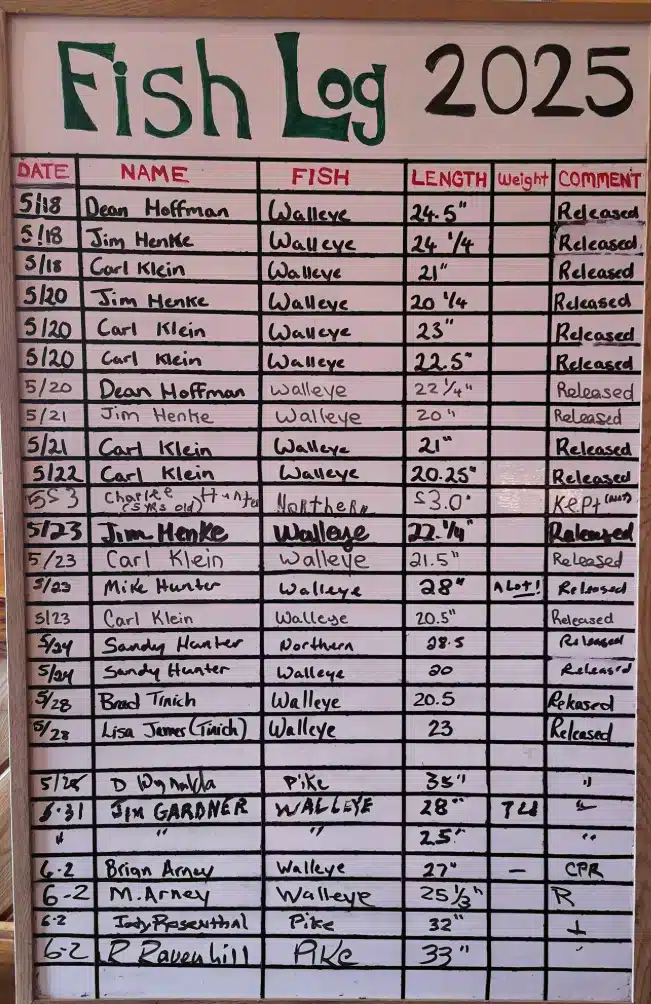 Fish Log 2025
DATE NAME FISH LENGTH Weight COMMENT
5/18 Dean Hoffman Walleye 24.5" Released
5/18 Jim Henke Walleye 24 1/4 Released
5/18 Carl Klein Walleye 21" Released
5/20 Jim Henke Walleye 20 1/4 Released
5/20 Carl Klein Walleye 23" Released
5/20 Carl Klein Walleye 22.5" Released
5/20 Dean Hoffman Walleye 22 1/4" Released
5/21 Jim Henke Walleye 20" Released
5/21 Carl Klein Walleye 21" Released
5/22 Carl Klein Walleye 20.25" Released
Hunter Northern Kept (Not)
(5 yrs old)
5/23 Jim Henke Walleye 22.1/4" Released
5/23 Carl Klein Walleye 21.5" Released
5/23 Mike Hunter Walleye 28" A Lot! Released
5/23 Carl Klein Walleye 20.5" Released
5/24 Sandy Hunter Northern 28.5 Released
5/24 Sandy Hunter Walleye 20 Released
5/28 Brad Tinich Walleye 20.5 Released
5/28 Lisa James (Tinich) Walleye 23 Released
D Pike "
31 Jim GARDNER WALLEYE 28" "
" " " 25" "
6-2 Brian Arney Walleye 27" - CPR
6-2 M. Arney Walleye 25 1/3" R
6-2 Rosenthal Pike 32"
6-2 R Ravenhill Pike 33" "